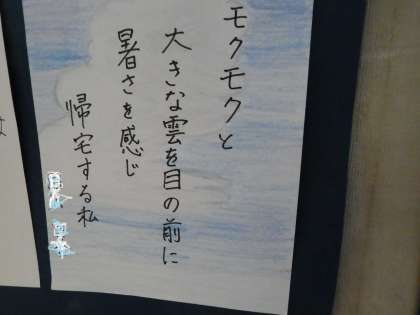 モクモクと
大きな雲を目の前に
暑さを感じ
帰宅する私